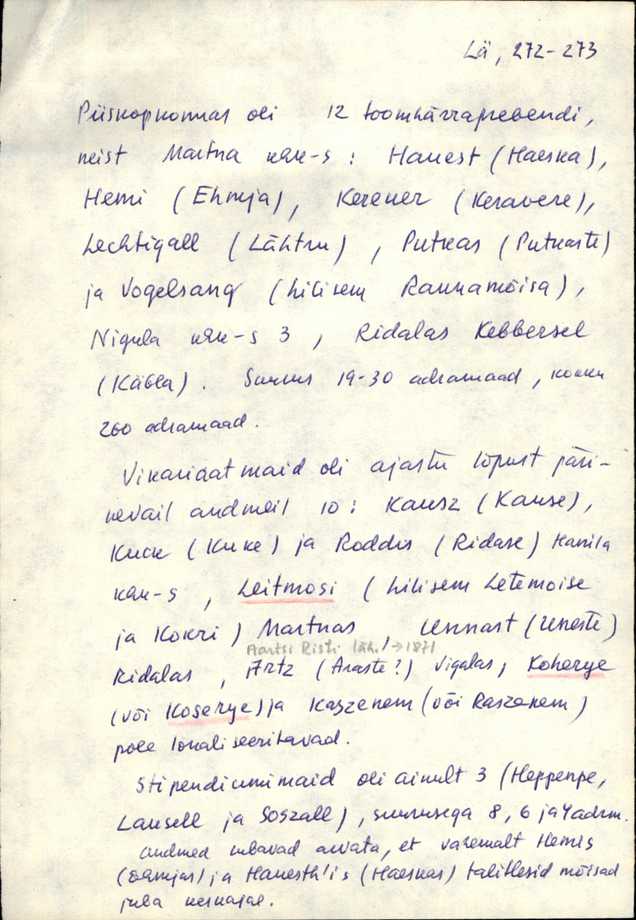 Lä, 272-273
Piiskopkonnas oli 12 toomhärraprebendi,
neist Martna khk-s : Hanest (Haeska),
Hemi (Ehmja), Kerever (Keravere),
Lechtigall (Lähtru) , Putkas (Putkaste)
ja Vogelsang (hilisem Raunamõisa),
Nigula khk-s 3 , Ridalas Kebbersel
(Käbla). Suurus 19-30 adramaad , kokku
260 adramaad.
Vikariaatmaid oli ajastu lõpust päri-
nevail andmeil 10 : Kausz (Kause),
Kuck (Kuke) ja Roddis (Ridase) Hanila
khk-s , Leitmosi (hilisem Letemoise
ja Kokri) Martnas , Unnast (Uneste)
Aartsi Risti läh. / → 1871
Ridalas , Artz (Araste?) Vigalas, Koherye
(või Koserye) ja Kaszenem (või Raszenem)
pole lokaliseeritavad.
Stipendiumimaid oli ainult 3 (Heppenpe,
Lausell ja Soszall) , suurusega 8, 6 ja 4 adrm.
Andmed lubavad arvata, et vähemalt Hemis
(Ehmjas) ja Hanesth'is (Haeskas) talitlesid mõisad
juba keskajal.